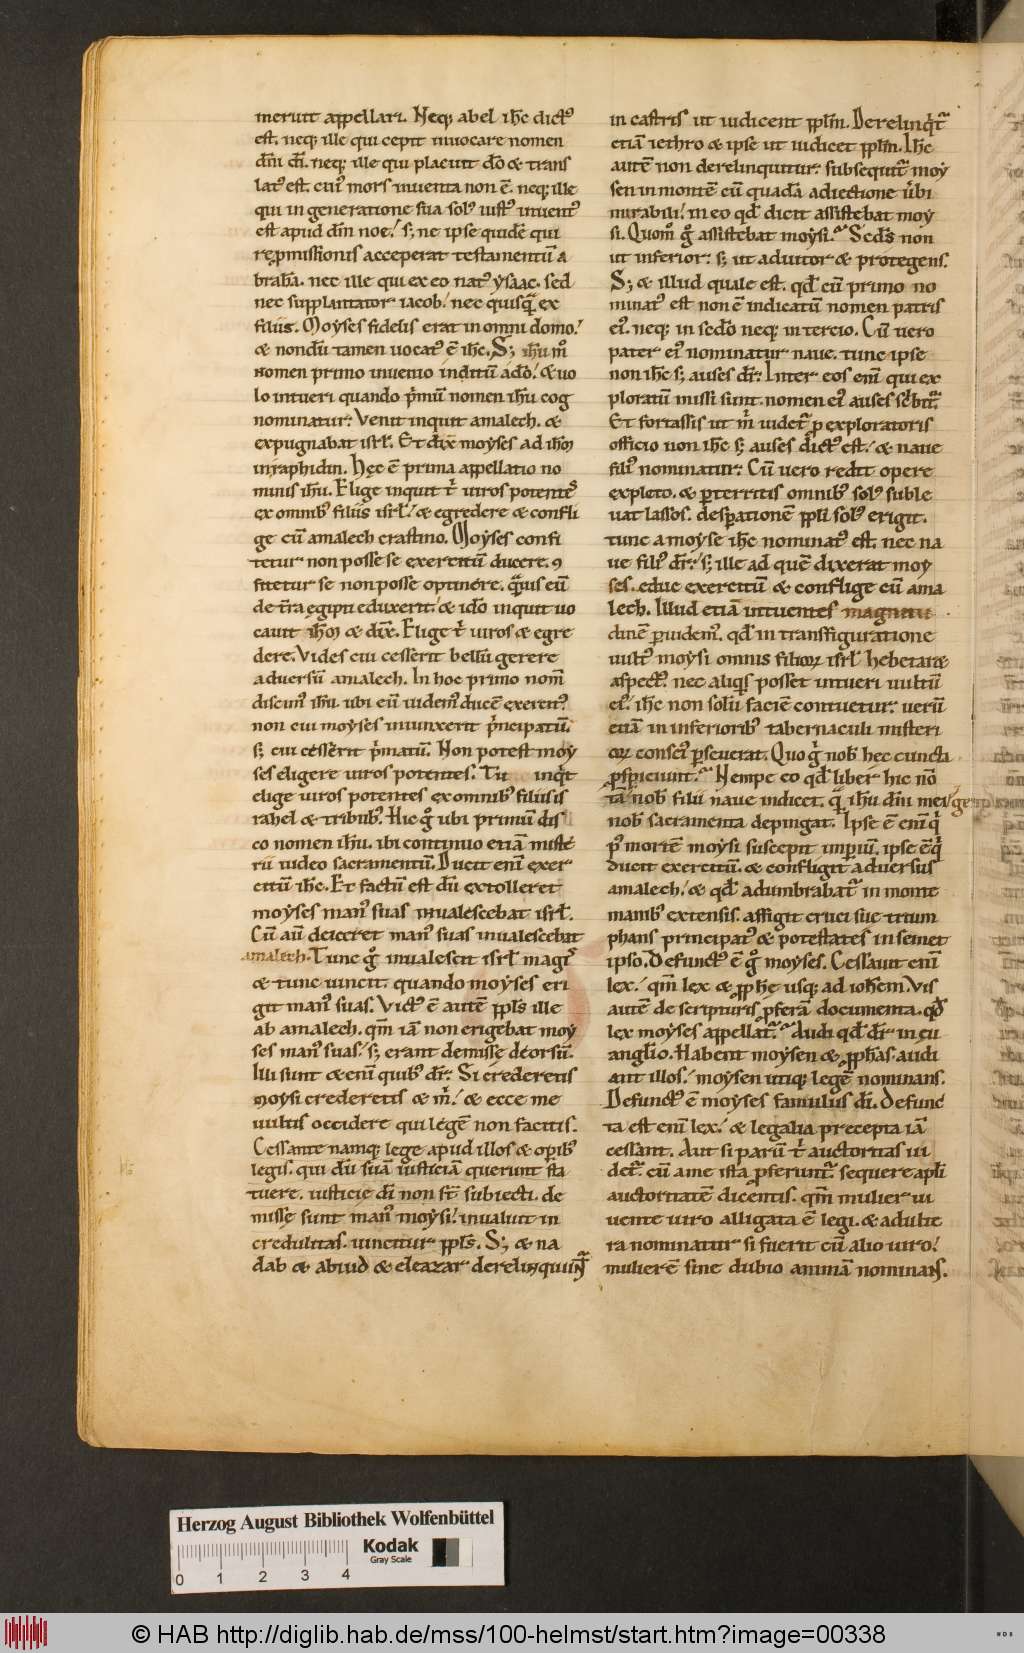 meruit appellari. Neq; abel ihc dictꝰ
est. neq; ille qui cepit inuocare nomen
dn̄i dī. neq; ille qui placuit dō & trans
latꝰ est. cuiꝰ mors inuenta non ē. neq; ille
qui in generatione sua solꝰ iustꝰ inuentꝰ
est apud dm̄ noe. s; ne ipse quidē qui
repmissionis acceperat testamentū a
brahā. nec ille qui ex eo natꝰ ysaac. sed
nec supplantator iacob. nec quisquā ex
filiis. Moyses fidelis erat in omni domo.
& nondū tamen uocatꝰ ē ihc. S; ihū m̊
nomen primo inuenio inditū adō. & uo
lo intueri quando pͥmū nomen ihū cog
nominatur. Venit inquit amalech. &
expugnabat isrl̄. Et dix̄ moyses ad ihm̄
in raphidin. Hęc ē prima appellatio no
minis ihū. Elige inquit tͥ uiros potentes
ex omnibꝰ filiis isrl̄. & egredere & confli
ge cū amalech crastino. Moyses confi
tetur non posse se exercitū ducere. ꝯ
fitetur se non posse optinere. quāuis eū
de tr̄a egipti eduxerit. & idō inquit uo
cauit ihm̄ & dix̄. Elige tͥ uiros & egre
dere. Vides cui cesserit bellū gerere
aduersū amalech. In hoc primo nom̄
discimꝰ ihū. ubi eū uidemꝰ ducē exercitꝰ.
non cui moyses iniunxerit pͥncipatū.
s; cui cesserit pͥmatū. Non potest moy
ses eligere uiros potentes. Tu inqͥt
elige uiros potentes ex omnibꝰ filiis is
rahel & tribubꝰ. Hic g̊ ubi primū dis
co nomen ihū. ibi continuo etiā miste
rii uideo sacramentū. Ducit enī exer
citū ihc. Et factū est dū extolleret
moyses manꝰ suas inualescebat isrl̄.
Cū aū deiceret manꝰ suas inualescebat
amalech. Tunc g̊ inualescit isrl̄ magis
& tunc uincit. quando moyses eri
git manꝰ suas. Victꝰ ē autē ppl̄s ille
ab amalech. qm̄ iā non erigebat moy
ses manꝰ suas. s; erant demisse deorsū.
Illi sunt & enī quibꝰ dr̄. Si crederetis
moysi crederetis & m̄. & ecce me
uultis occidere qui legē non facitis.
Cessante namq; lege apud illos & opibꝰ
legis. qui dū suā iusticiā querunt sta
tuere. iusticie dī non st̄ subiecti. de
misse sunt manꝰ moysi. inualuit in
credulitas. uincitur ppl̄s. S; & na
dab & abiud & eleazar derelinquunt̄
in castris ut iudicent ppl̄m. Derelinqͥt̄
etiā iethro & ipse ut iudicet ppl̄m. Ihc
autē non derelinquitur. subsequit̄ moy
sen in montē cū quadā adiectione u̇bi
mirabili. in eo qd̄ dicit assistebat moy
si. Quom̊ g̊ assistebat moysi. Scdꝰ non
ut inferior. s; ut adiutor & protegens.
S; & illud quale est. qd̄ cū primo no
minatꝰ est non ē indicatū nomen patris
eiꝰ. neq; in scdō neq; in tercio. Cū uero
pater eiꝰ nominatur naue. tunc ipse
non ihc s; auses dr̄. Inter eos enī qui ex
ploratū missi sunt. nomen eiꝰ auses scͥbit̄.
Et fortassis ut m̄ uidet̄ p exploratoris
officio non ihc s; auses dictꝰ est. & naue
filiꝰ nominatur. Cū uero redit opere
expleto. & pterritis omnibꝰ solꝰ suble
uat lassos. despationē ppl̄i solꝰ erigit.
tunc a moyse ihc nominatꝰ est. nec na
ue filiꝰ dr̄. s; ille ad quē dixerat moy
ses. educ exercitū & conflige cū ama
lech. Illud etiā intuentes magnitu
dinē puidemꝰ. qd̄ in transfiguratione
uultꝰ moysi omnis filioꝝ isrl̄ hebetatꝰ
aspectꝰ. nec aliqͥs posset intueri uultū
eiꝰ. ihc non solū faciē contuetur. uerū
etiā in inferioribꝰ tabernaculi misteri
oꝝ consciꝰ pseuerat. Quo g̊ nob̄ hec cuncta
pspiciunt. Nempe eo qd̄ liber hic nō
tā nob̄ filii naue indicet. qā ihū dn̄i mei gesta
nob̄ sacramenta depingat. Ipse ē enī qͥ
pꝰ mortē moysi suscepit impiū. ipse ē qͥ
ducit exercitū. & confligit aduersus
amalech. & qd̄ adumbrabat̄ in monte
manibꝰ extensis. affigit cruci sue trium
phans principatꝰ & potestates in semet
ipso. Defunctꝰ ē g̊ moyses. Cessauit enī
lex. qm̄ lex & pphe usq; ad iohēm. Vis
autē de scripturis pferā documenta. qd̄
lex moyses appellat̄. Audi qd̄ dr̄ in eu
angl̄io. Habent moysen & pphās. audi
ant illos. moysen utiq; legē nominans.
Defunctꝰ ē moyses famulus dī. Defunc
ta est enī lex. & legalia precepta iā
cessant. Aut si parū tͥ auctoritas ui
det̄. cū a me ista pferunt̄. sequere apl̄i
auctoritatē dicentis. qm̄ mulier ui
uente uiro alligata ē legi. & adulte
ra nominatur si fuerit cū alio uiro.
mulierē sine dubio animā nominans.
Herzog August Bibliothek Wolfenbüttel
Kodak
Gray Scale
0 1 2 3 4
© HAB http://diglib.hab.de/mss/100-helmst/start.htm?image=00338